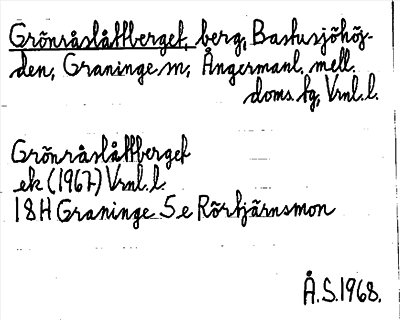 Grönråslåttberget, berg, Bastusjöhöj-
den, Graninge sn, Ångermanl. mell.
doms. fg, Vrnl. l.
Grönråslåttberget
ek (1967) Vrnl. l.
18H Graninge 5e Rörtjärnsmon
Å.S. 1968.